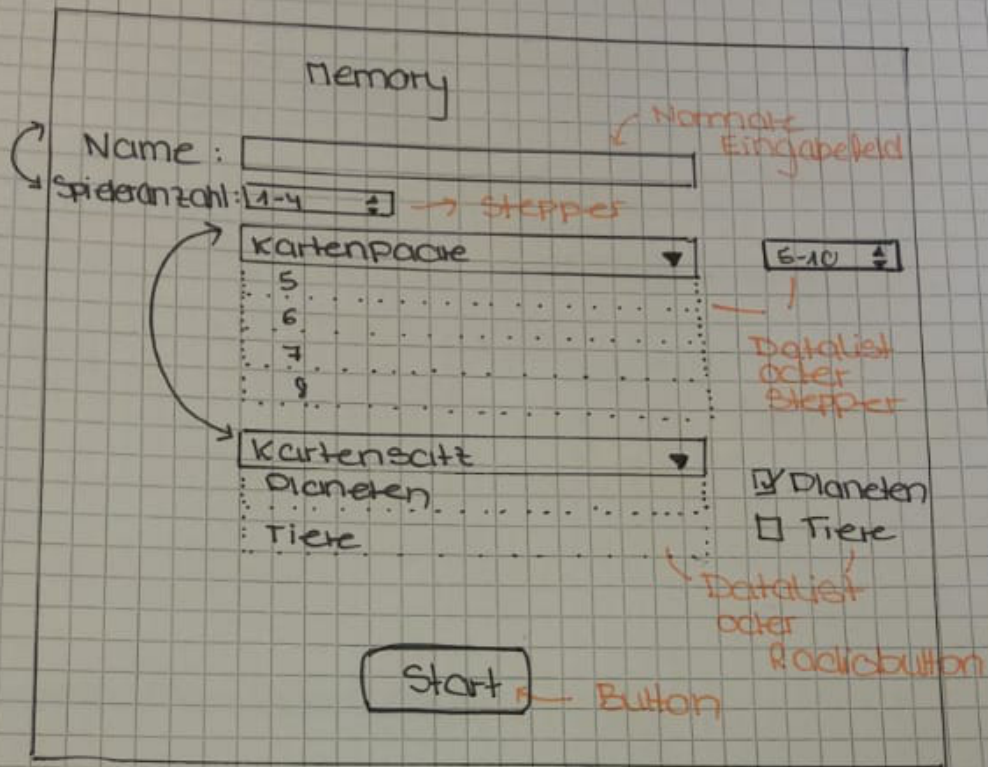 Memory
Name:
Normale
Eingabefeld
Spieleranzahl: 1-4
Stepper
Kartenpaare
5-10
5
6
7
8
Datalist
oder
Stepper
Kartensatz
Planeten
Tiere
Planeten
Tiere
Datalist
oder
Radiobutton
Start
Button